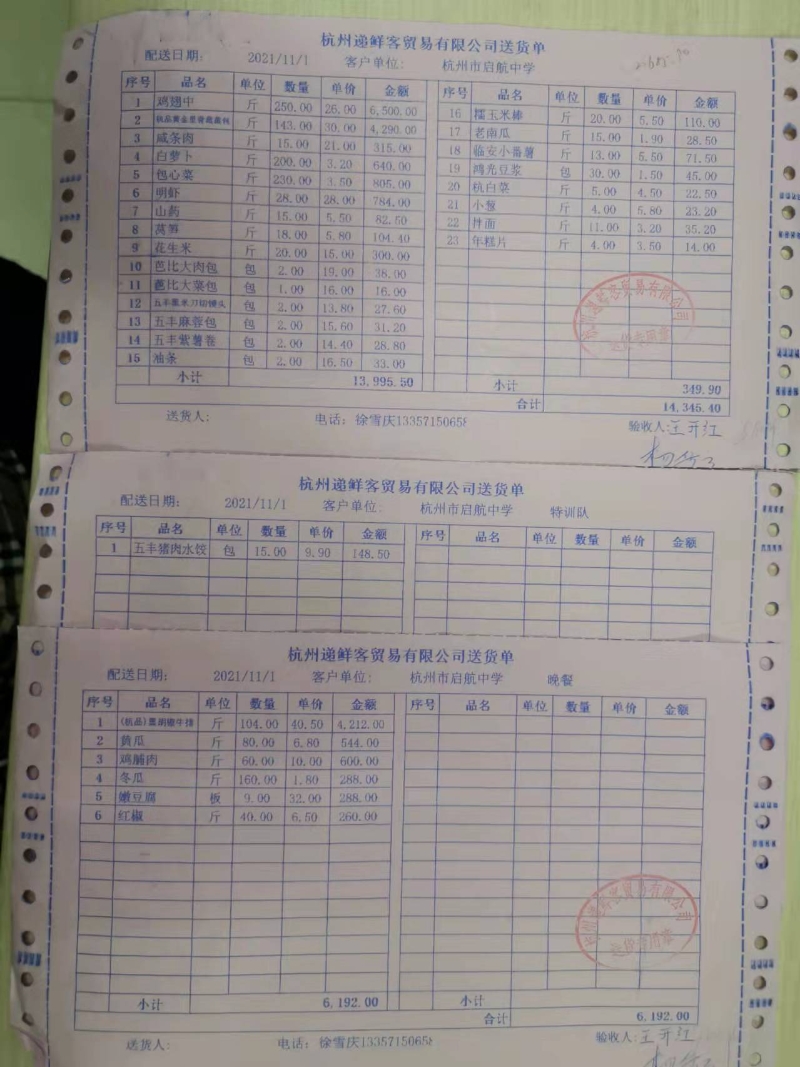 杭州递鲜客贸易有限公司送货单
配送日期: 2021/11/1 客户单位: 杭州市启航中学
序号 品名 单位 数量 单价 金额 序号 品名 单位 数量 单价 金额
1 鸡翅中 斤 250.00 26.00 6,500.00 16 糯玉米棒 斤 20.00 5.50 110.00
2 斤 143.00 30.00 4,290.00 17 老南瓜 斤 15.00 1.90 28.50
3 咸条肉 斤 15.00 21.00 315.00 18 临安小番薯 斤 13.00 5.50 71.50
4 白萝卜 斤 200.00 3.20 640.00 19 鸿光豆浆 包 30.00 1.50 45.00
5 包心菜 斤 230.00 3.50 805.00 20 杭白菜 斤 5.00 4.50 22.50
6 明虾 斤 28.00 28.00 784.00 21 小葱 斤 4.00 5.80 23.20
7 山药 斤 15.00 5.50 82.50 22 拌面 斤 11.00 3.20 35.20
8 莴笋 斤 18.00 5.80 104.40 23 年糕片 斤 4.00 3.50 14.00
9 花生米 斤 20.00 15.00 300.00
10 芭比大肉包 包 2.00 19.00 38.00
11 芭比大菜包 包 1.00 16.00 16.00
12 包 2.00 13.80 27.60
13 五丰麻蓉包 包 2.00 15.60 31.20
14 五丰紫薯卷 包 2.00 14.40 28.80
15 油条 包 2.00 16.50 33.00
小计 13,995.50 小计 349.90
合计 14,345.40
送货人: 电话: 徐雪庆13357150658 验收人: 王开红
杭州递鲜客贸易有限公司送货单
配送日期: 2021/11/1 客户单位: 杭州市启航中学 特训队
序号 品名 单位 数量 单价 金额 序号 品名 单位 数量 单价 金额
1 五丰猪肉水饺 包 15.00 9.90 148.50
杭州递鲜客贸易有限公司送货单
配送日期: 2021/11/1 客户单位: 杭州市启航中学 晚餐
序号 品名 单位 数量 单价 金额 序号 品名 单位 数量 单价 金额
1 (杭品)黑胡椒牛排 斤 104.00 40.50 4,212.00
2 黄瓜 斤 80.00 6.80 544.00
3 鸡脯肉 斤 60.00 10.00 600.00
4 冬瓜 斤 160.00 1.80 288.00
5 嫩豆腐 板 9.00 32.00 288.00
6 红椒 斤 40.00 6.50 260.00
小计 6,192.00 小计
合计 6,192.00
送货人: 电话: 徐雪庆13357150658 验收人: 王开红